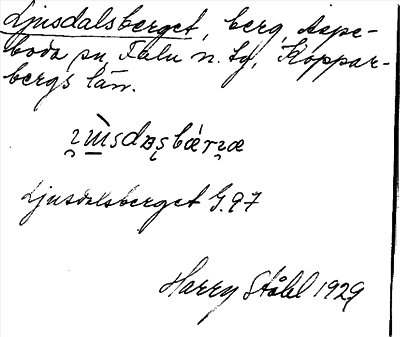 Ljusdalsberget, berg, Aspe-
boda sn, Falu n. tg, Koppar-
bergs län.
Ljusdalsberget G. 97
Harry Ståhl 1929